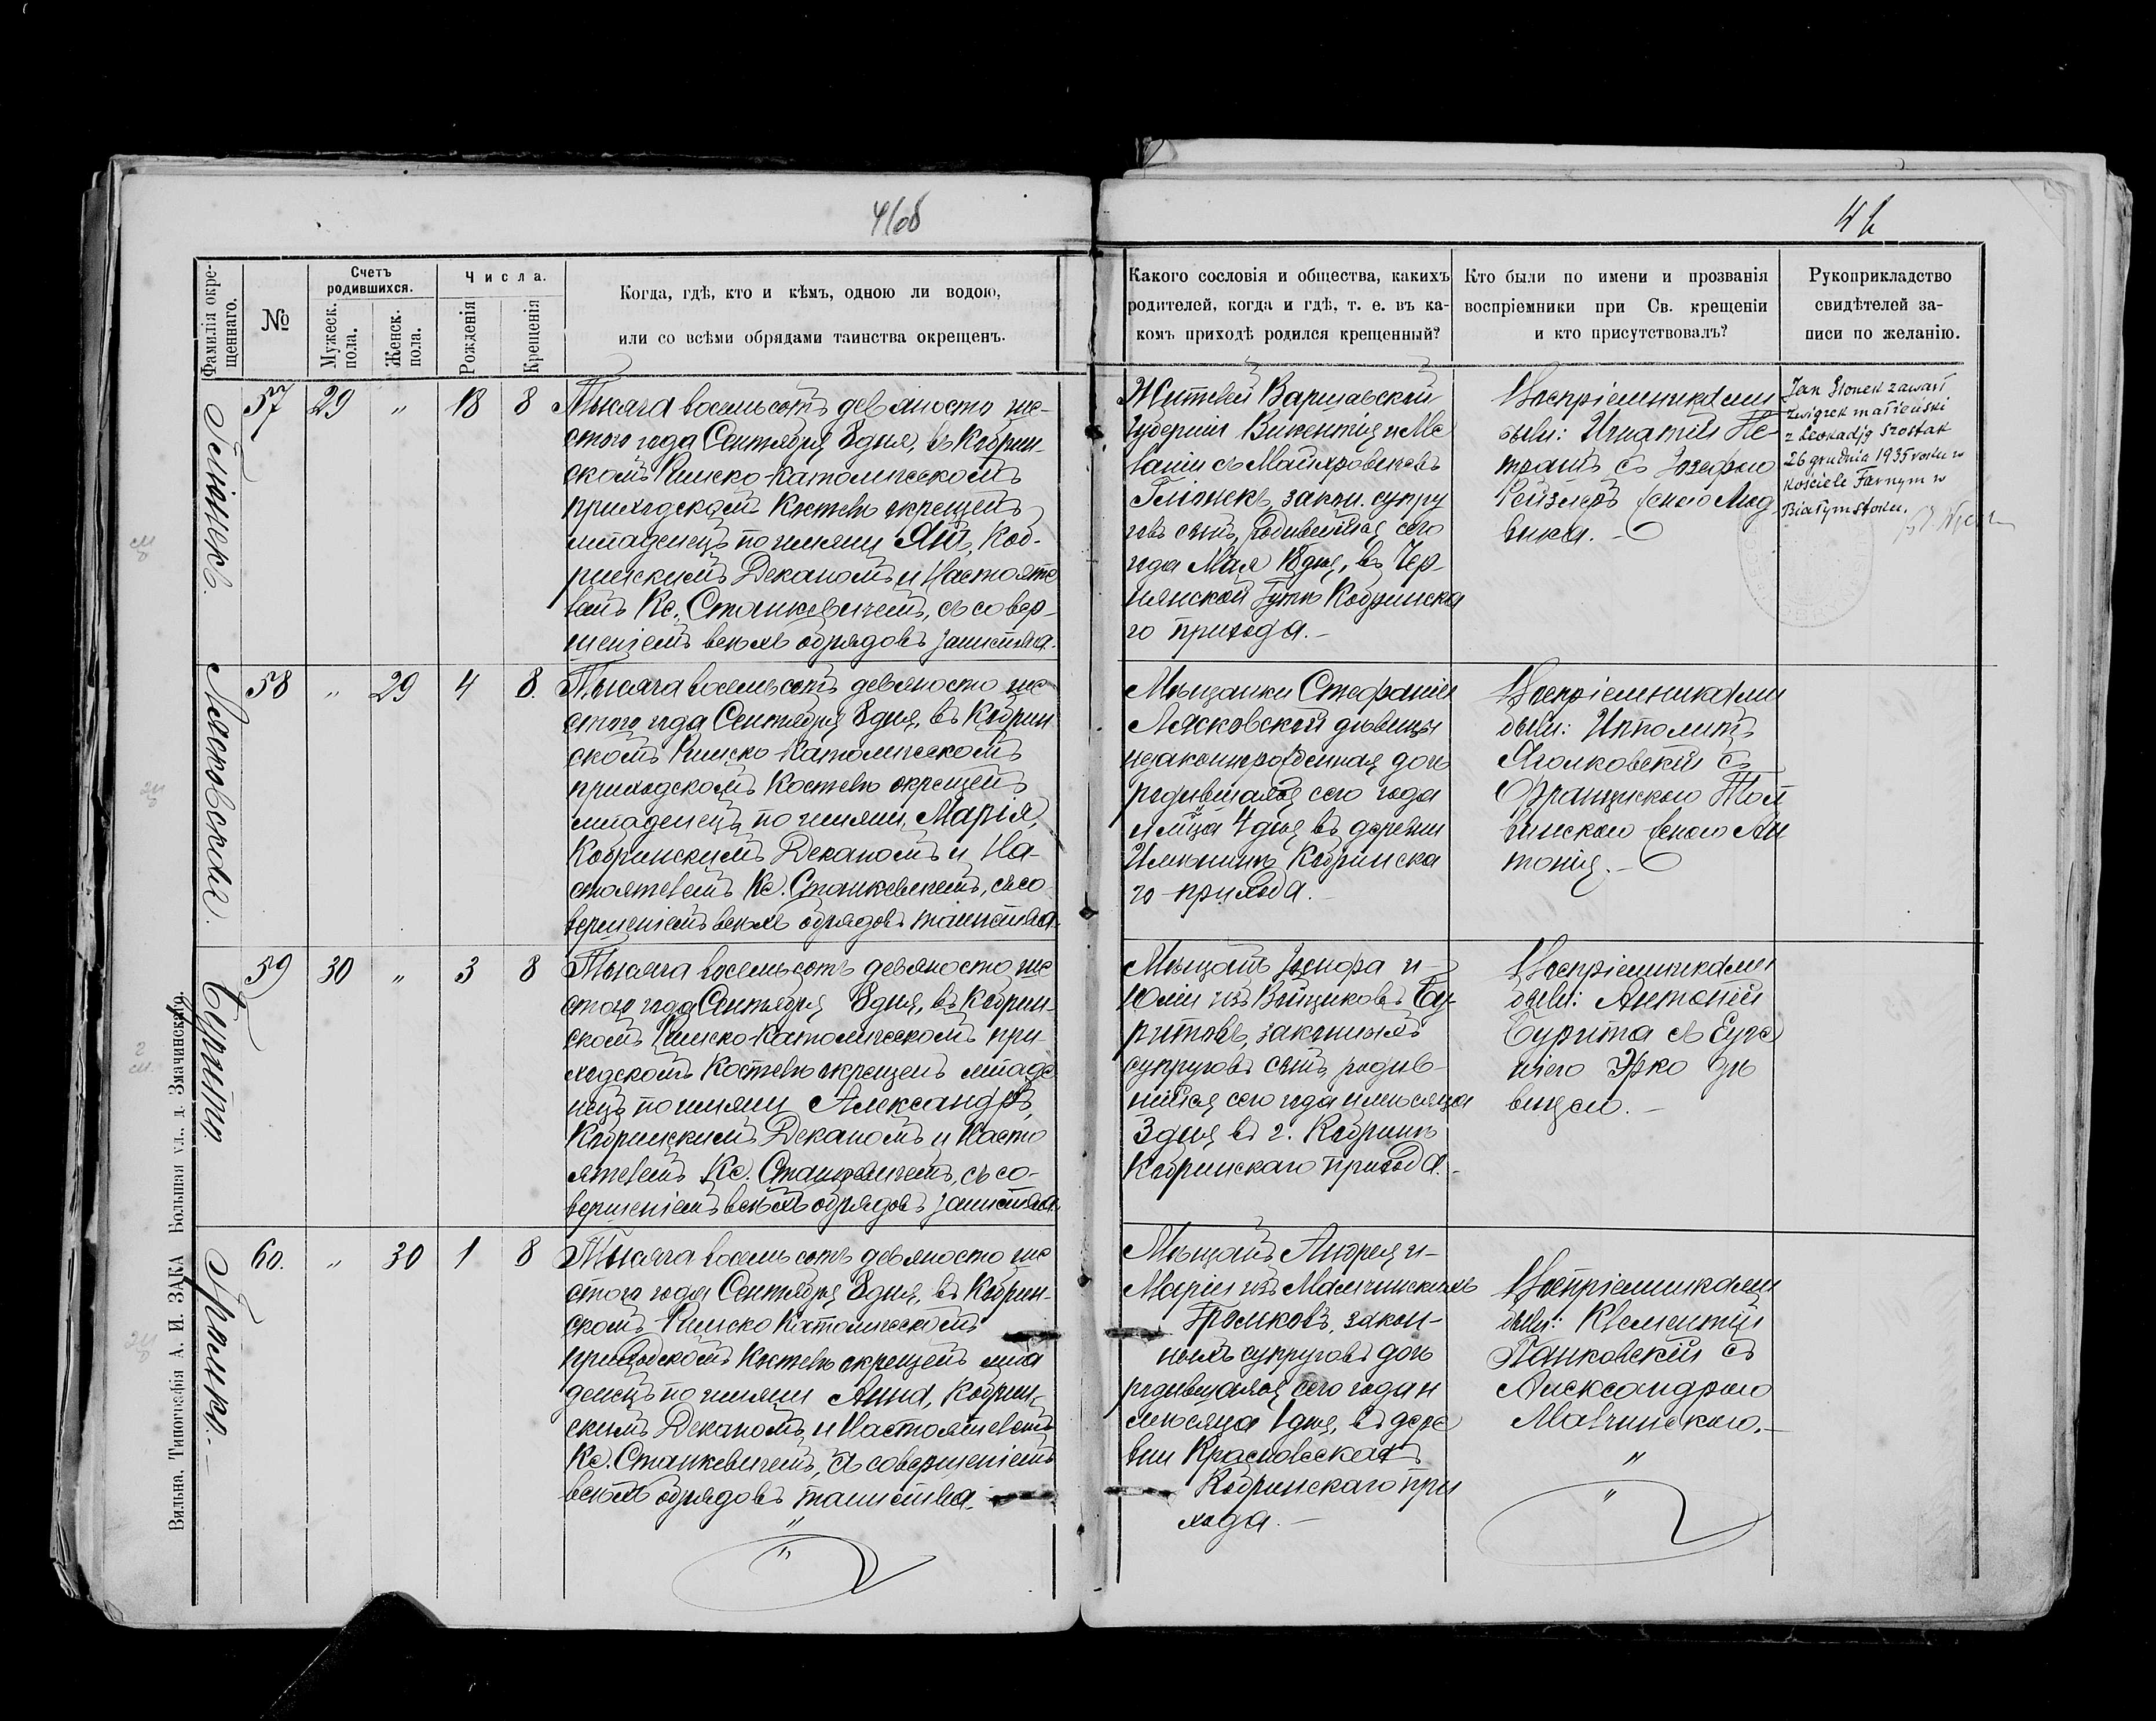 41об
42
Фамилія окре-
щеннаго.
№
Счетъ
родившихся.
Мужеск.
пола.
Женск.
пола.
Числа.
Рожденія
Крещенія
Когда, гдѣ, кто и кѣмъ, одною ли водою,
или со всѣми обрядами таинства окрещенъ.
Какого сословія и общества, какихъ
родителей, когда и гдѣ, т. е. въ ка-
комъ приходѣ родился крещенный?
Кто были по имени и прозванія
воспріемники при Св. крещеніи
и кто присутствовалъ?
Рукоприкладство
свидѣтелей за-
писи по желанію.
Гліонекъ.
57
29
"
18
8
Тысяча восемьсотъ девяносто ше-
стого года Сентября 8 дня, въ Кобрин-
скомъ Римско-Католическомъ
приходскомъ Костелѣ окрещенъ
младенецъ по имени Янъ, Коб-
ринскимъ Деканомъ и Настояте
лемъ Кс. Станкевичемъ, съ совер-
шеніемъ всѣхъ обрядовъ таинства.
Жителей Варшавской
губерніи Викентія и Ме
ланіи съ
Гліонекъ, закон. супру
говъ сынъ, родившійся сего
года Мая 18 дня, въ Чер-
нянской Гутѣ Кобринска
го прихода.-
Воспріемниками
были: Игнатій Пе-
съ Юзефою
женою Люд-
вика.-
Jan Glonek zawarł
związek małżeński
z Leokadją Szostak
26 grudnia 1935 roku w
Kościele Farnym w
Białymstoku.
Лясковская.
58
"
29
4
8.
Тысяча восемьсотъ девяносто ше
стого года Сентября 8 дня, въ Кобрин
скомъ Римско-Католическомъ
приходскомъ Костелѣ окрещенъ
младенецъ по имени Марія,
Кобринскимъ Деканомъ и На-
стоятелемъ Кс. Станкевичемъ, съ со
вершеніемъ всѣхъ обрядовъ таинства.
Мѣщанки Стефаніи
Лясковской дѣвицы
незаконнорожденная дочь
родившаяся сего года
и м-ца 4 дня въ деревни
Кобринска
го прихода.-
Воспріемниками
были: Ипполитъ
Яголковскій съ
Францискою
женою Ан
тонія.-
Бурита.
59
30
"
3
8
Тысяча восемьсотъ девяносто ше
стого года Сентября 8 дня, въ Кобрин-
скомъ Римско-Католическомъ при-
ходскомъ Костелѣ окрещенъ младе
нецъ по имени Александръ,
Кобринскимъ Деканомъ и Насто
ятелемъ Кс. Станкевичемъ, съ со-
вершеніемъ всѣхъ обрядовъ таинства.
Мѣщанъ и
Юліи изъ Войциковъ Бу-
ритовъ, законныхъ
супруговъ сынъ, родив-
шійся сего года и мѣсяца
3 дня въ г. Кобринѣ
Кобринскаго прихода.-
Воспріемниками
были: Антоній
Бурита съ Евге
ніею Эрко дѣ
вицею.-
Громко.-
60.
"
30
1
8
Тысяча восемьсотъ девяносто ше
стого года Сентября 8 дня, въ Кобрин-
скомъ Римско Католическомъ
приходскомъ Костелѣ окрещенъ мла
денецъ по имени Анна, Кобрин-
скимъ Деканомъ и Настоятелемъ
Кс. Станкевичемъ, съ совершеніемъ
всѣхъ обрядовъ таинства.-
"
"
Мѣщанъ Андрея и
Маріи изъ Малчинскихъ
Громковъ, закон-
ныхъ супруговъ дочь
родившаяся сего года и
мѣсяца 1 дня, въ дерe
вни
Кобринскаго при
хода.-
Воспріемниками
были: Клементій
Панковскій съ
Александрою
Малчинскою.-
"
"
Вильна, Типографія А. И. ЗАКА Большая ул., д. Значинскаго.